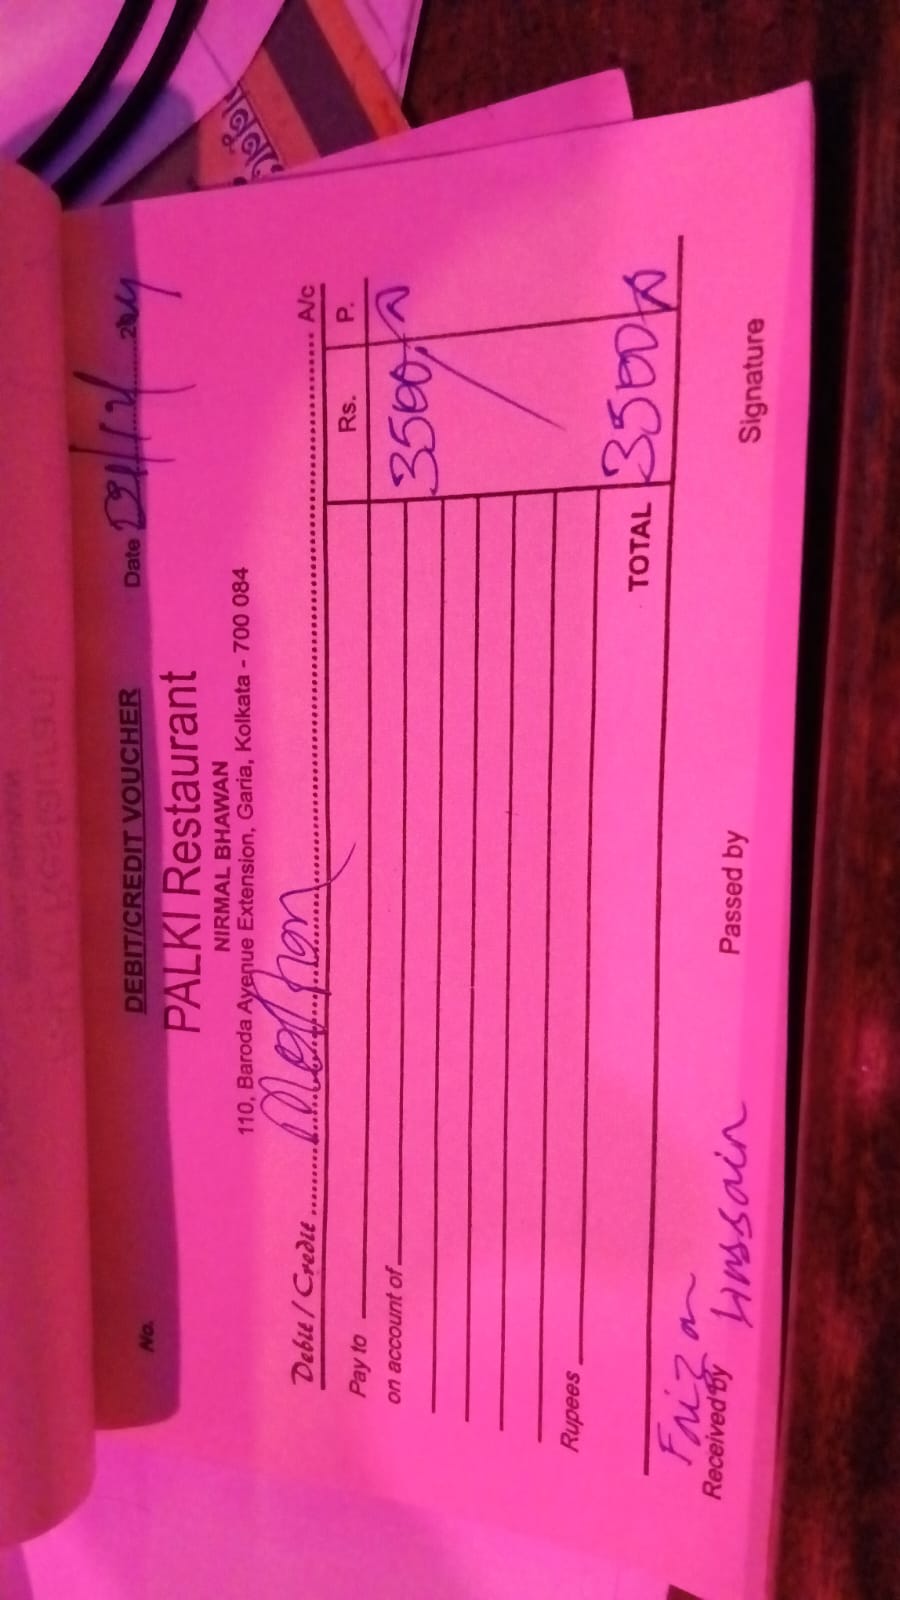 নুনতে
DEBIT/CREDIT VOUCHER
No.
Date 2024
PALKI Restaurant
NIRMAL BHAWAN
110, Baroda Avenue Extension, Garia, Kolkata - 700 084
Debit / Credit A/c
Pay to Rs. P.
on account of 3500
Rupees
TOTAL 3500
Faizan
Hussain
Received by Passed by Signature